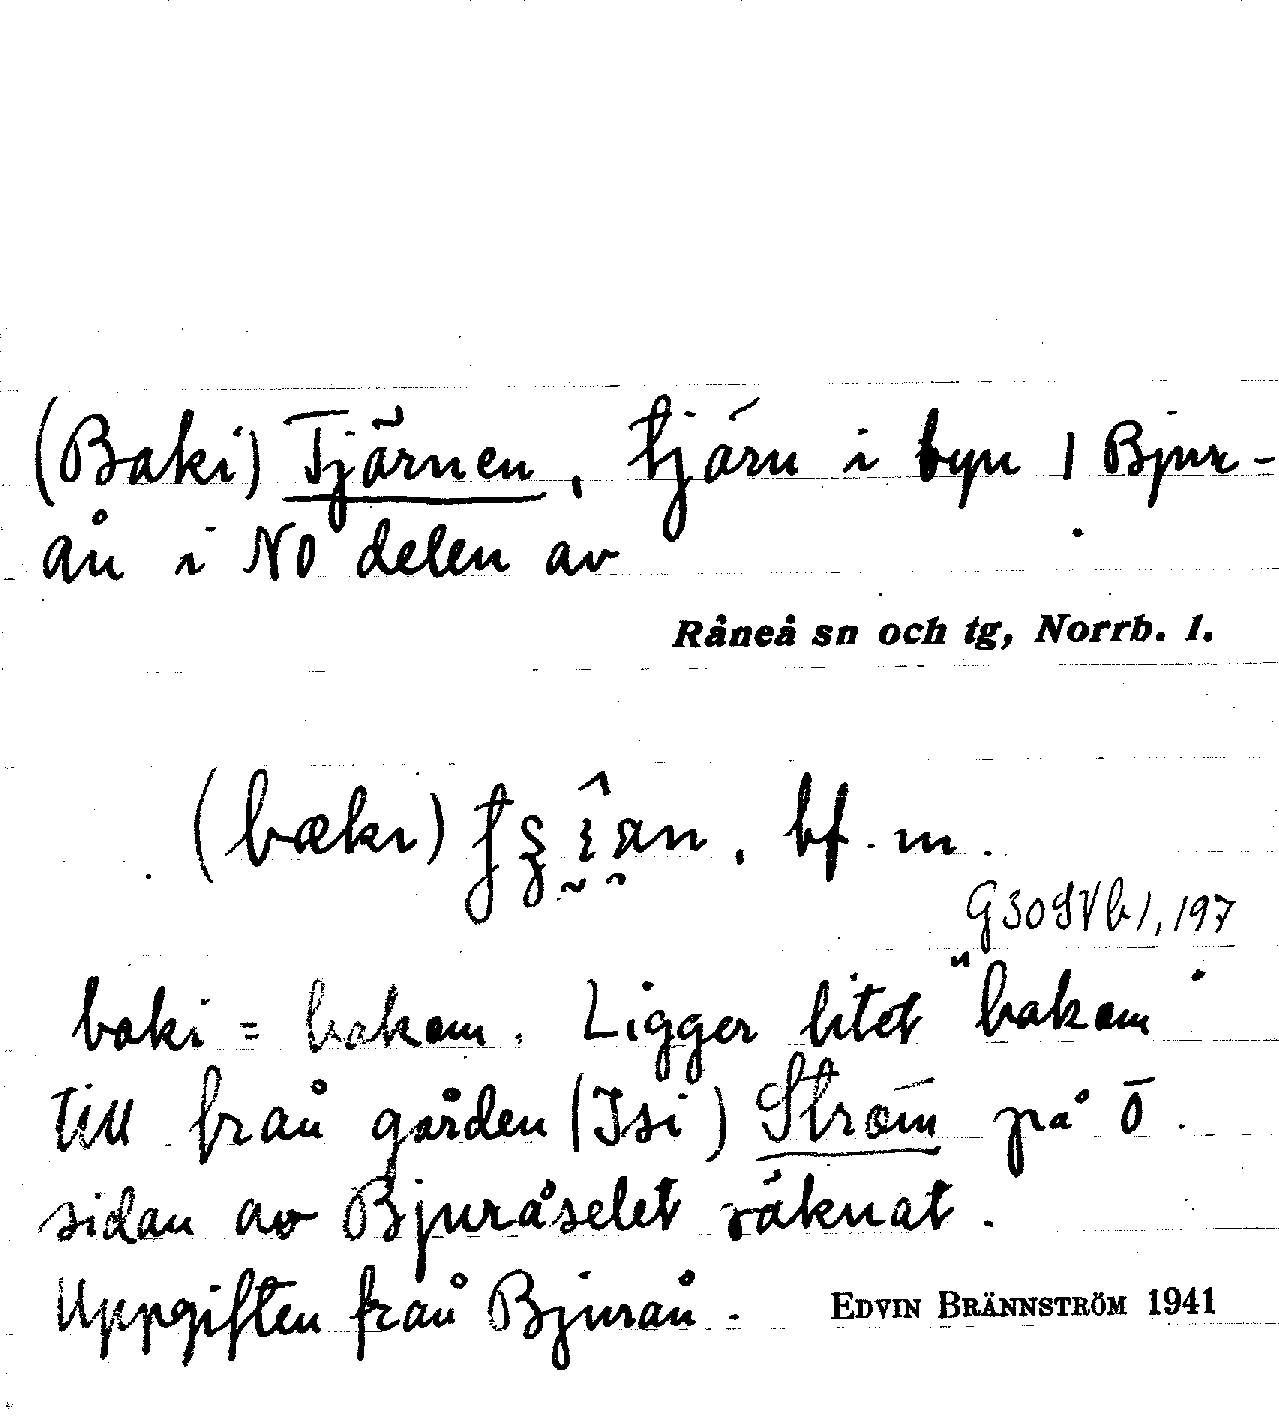 (Baki) Tjärnen, tjärn i byn 1 Bjur-
ån i NO delen av
Råneå sn och tg, Norrb. l.
(bæki) bf. m.
G30SVb1, 197
baki = bakom. Ligger litet "bakom"
till från gården (Isi) Ström på Ö.
sidan av Bjuråselet räknat.
Uppgiften från Bjurån.
EDVIN BRÄNNSTRÖM 1941